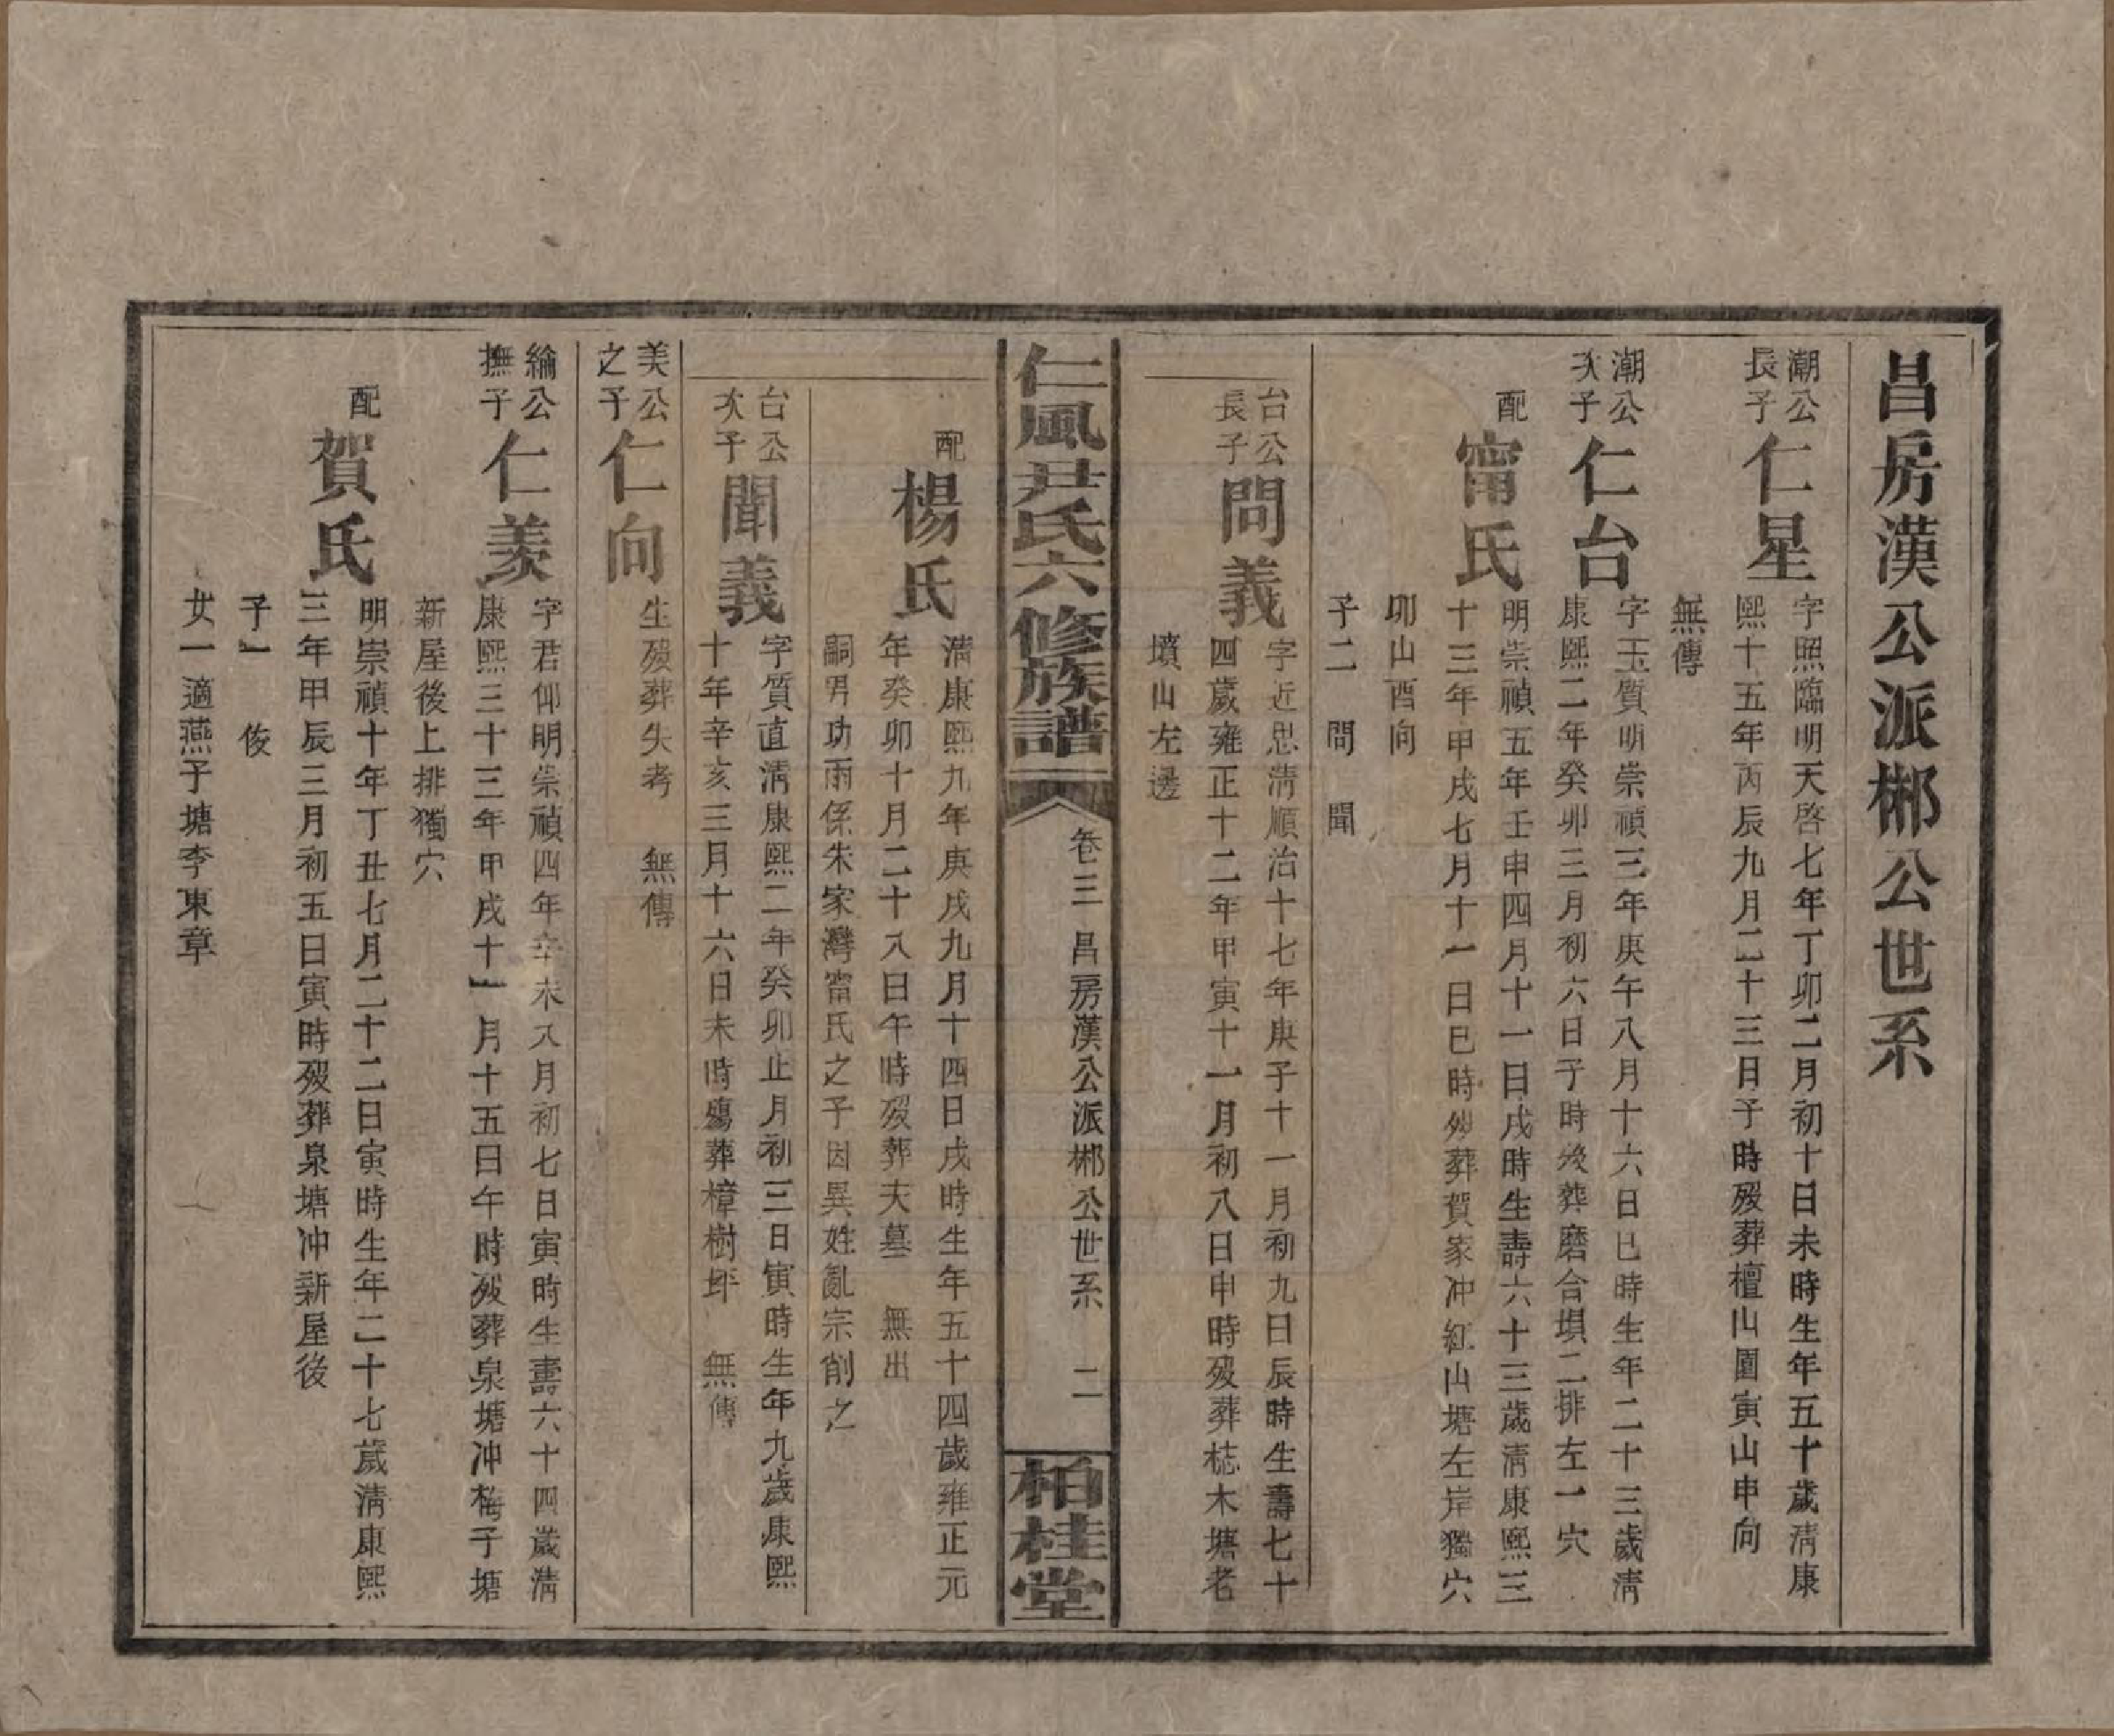 昌房漢公派郴公世系
潮公長子仁星
字照臨明天啓七年丁卯二月初十日未時生年五十歲淸康
熙十五年丙辰九月二十三日子時歿葬檀山園寅山申向
無傳
潮公次子仁台
字玉質明崇禎三年庚午八月十六日巳時生年二十三歲淸
康熙二年癸卯三月初六日子時歿葬磨合塤二排左一穴
配甯氏
明崇禎五年壬申四月十一日戌時生壽六十三歲淸康熙三
十三年甲戌七月十一日巳時歿葬賀家冲紅山塘左岸獨穴
卯山酉向
子二 問 聞
台公長子問義
字近思淸順治十七年庚子十一月初九日辰時生壽七十
四歲雍正十二年甲寅十一月初八日申時歿葬梽木塘老
墳山左邊
仁風尹氏六修族譜
卷三 昌房漢公派郴公世系 二
柏桂堂
配楊氏
淸康熙九年庚戌九月十四日戌時生年五十四歲雍正元
年癸卯十月二十八日午時歿葬夫墓 無出
嗣男功雨係朱家灣甯氏之子因異姓亂宗削之
台公次子聞義
字質直淸康熙二年癸卯正月初三日寅時生年九歲康熙
十年辛亥三月十六日未時殤葬樟樹坪 無傳
美公之子仁向
生歿葬失考 無傳
綸公撫子仁羨
字君仰明崇禎四年辛未八月初七日寅時生壽六十四歲淸
康熙三十三年甲戌十一月十五日午時歿葬泉塘冲梅子塘
新屋後上排獨穴
配賀氏
明崇禎十年丁丑七月二十二日寅時生年二十七歲淸康熙
三年甲辰三月初五日寅時歿葬泉塘冲新屋後
子一 俊
女一適燕子塘李東章